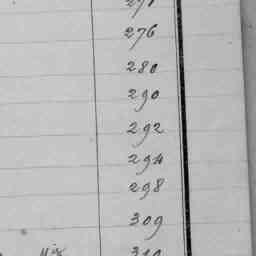 276
280
290
292
294
298
309